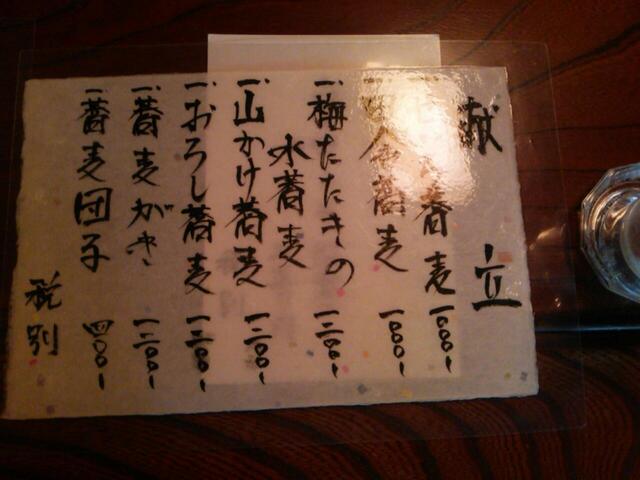 献立
蕎麦 一〇〇〇、
蕎麦 一〇〇〇、
一、梅たたきの
水蕎麦 一三〇〇、
一、山かけ蕎麦 一三〇〇、
一、おろし蕎麦 一三〇〇、
一、蕎麦がき 一三〇〇、
一、蕎麦団子 四〇〇、
税別